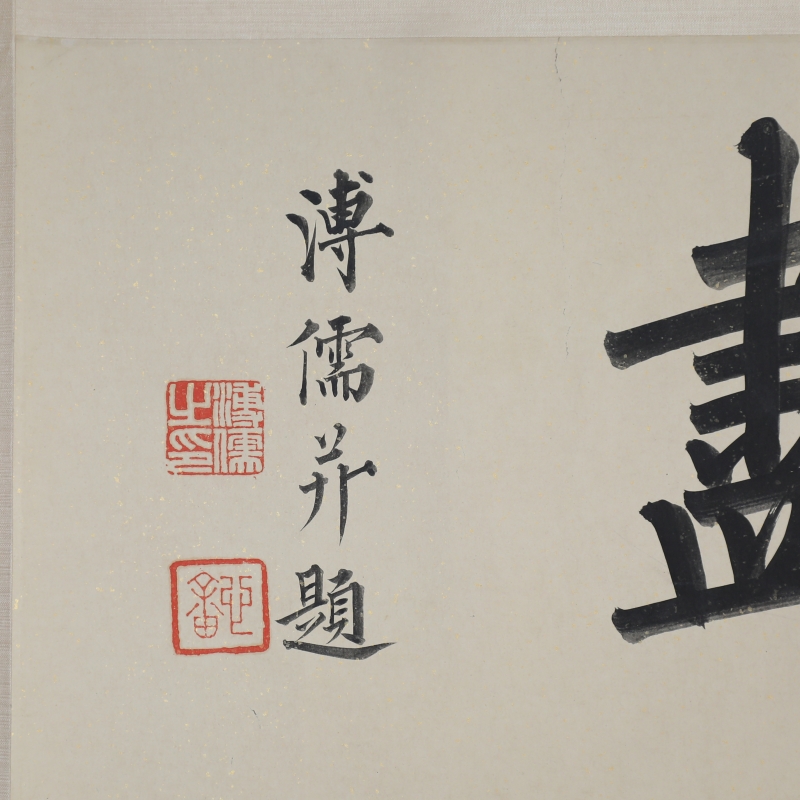 盡
溥儒并題
溥儒之印